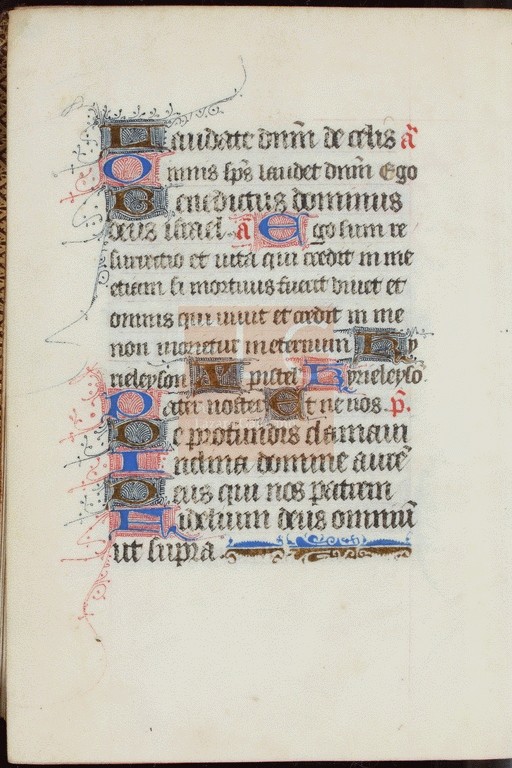 Laudate dnm de celis a
Omnis sps laudet dnm Ego
Benedictus dominus
deus israel. a Ego sum re
surrectio et vita qui credit in me
etiam si mortuus fuerit vivet et
omnis qui vivit et credit in me
non morietur in eternum Ky
rieleyson Xpistel Kyrieleyso
Pater noster Et ne nos p.
De profundis clamavi
In dina domine aure
Deus qui nos patrem
Fidelium deus omniu
ut supra